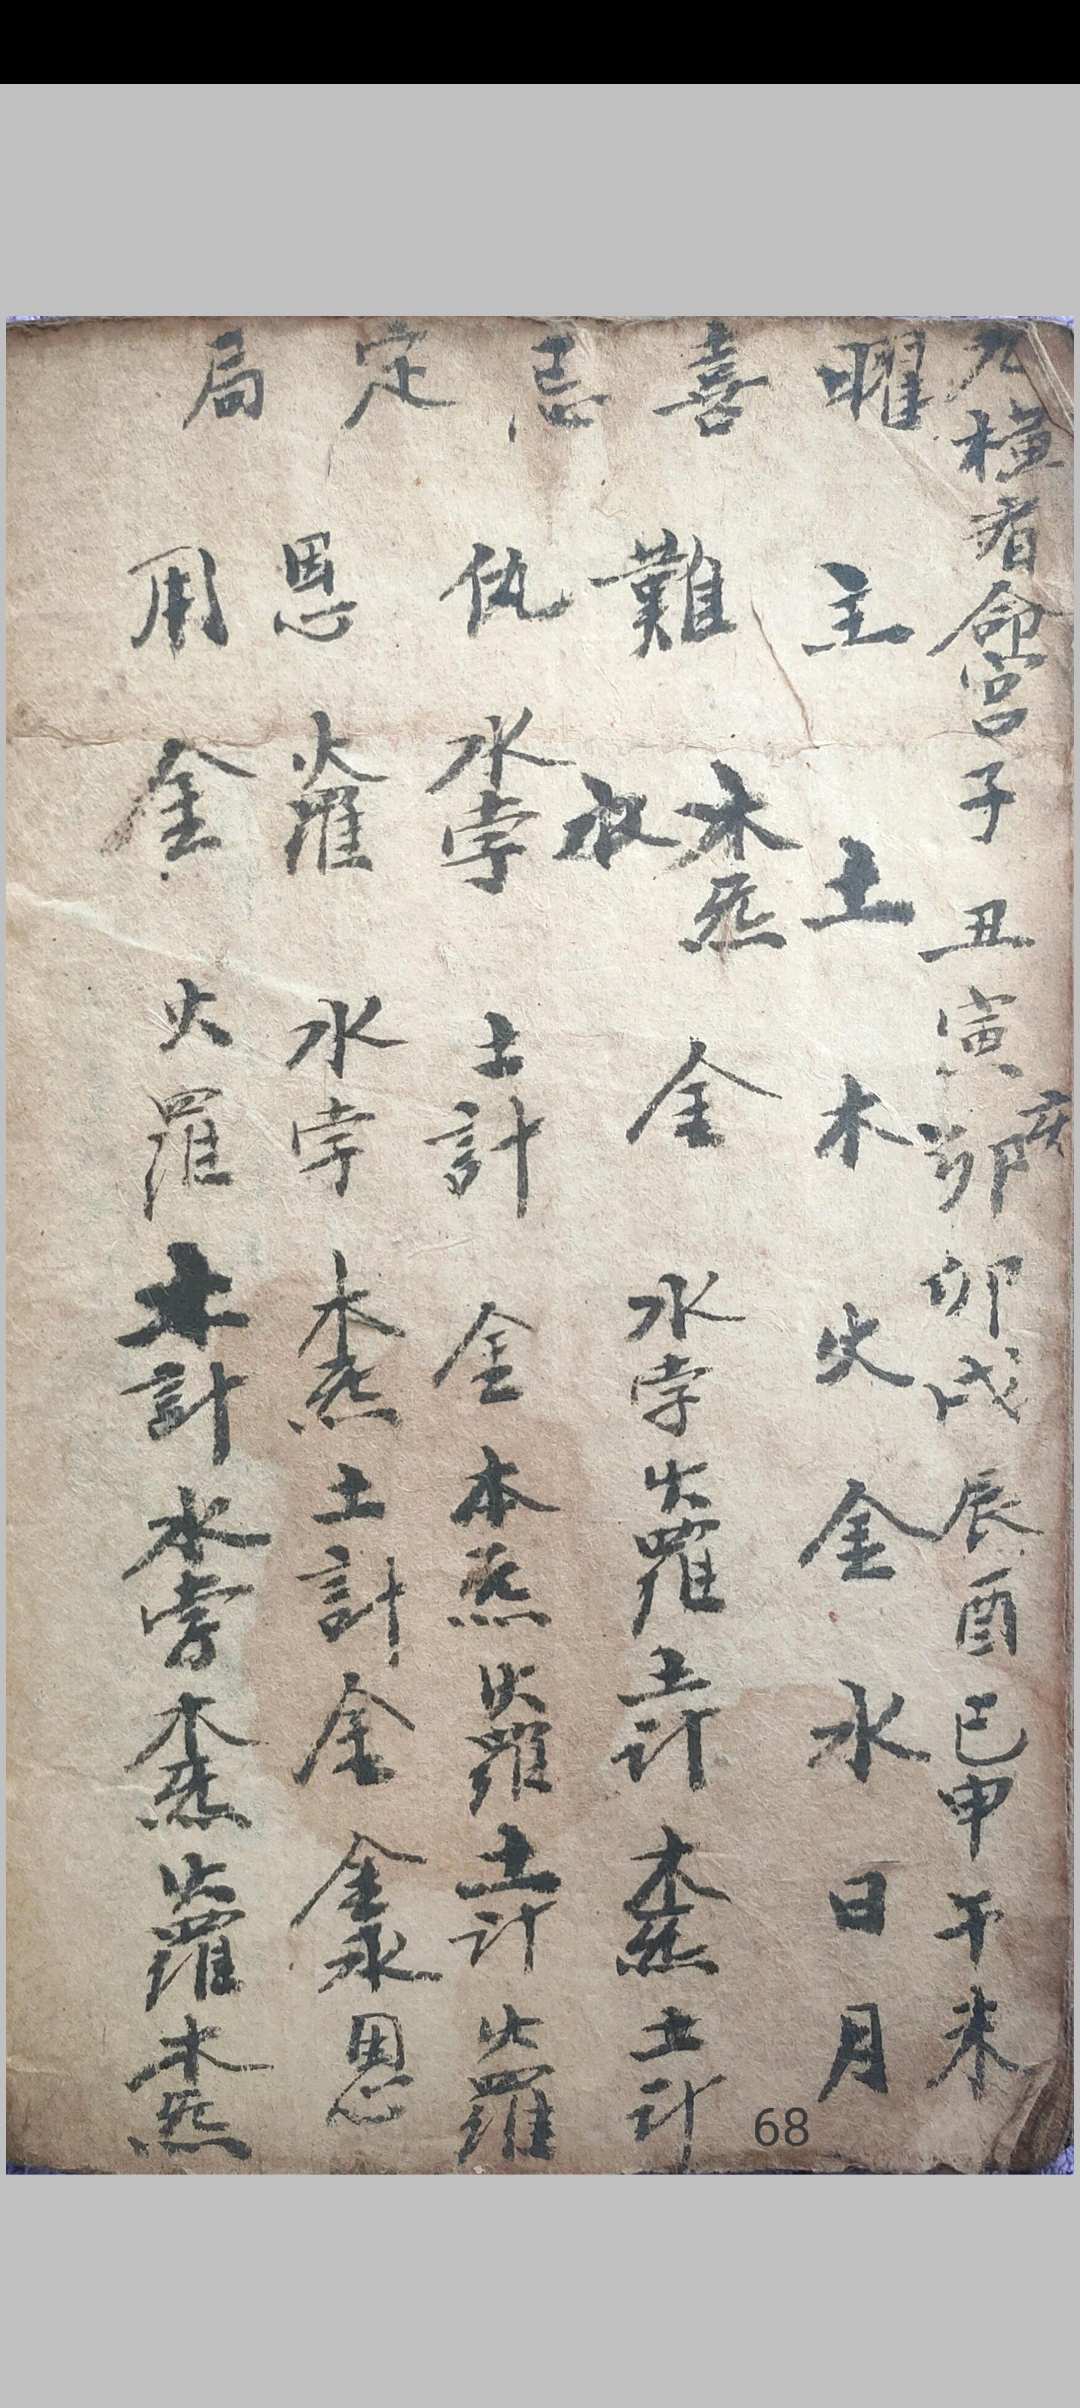 凡橫看命宮子丑寅亥卯卯戌辰酉巳申午未
曜喜忌定局
主土木火金水日月
難木炁金水孛火羅土计木炁土计
水
仇水孛土計金木炁火羅土计火羅
恩火羅水孛木炁土計金金水恩
用金火羅木計水孛木炁火羅木炁
68